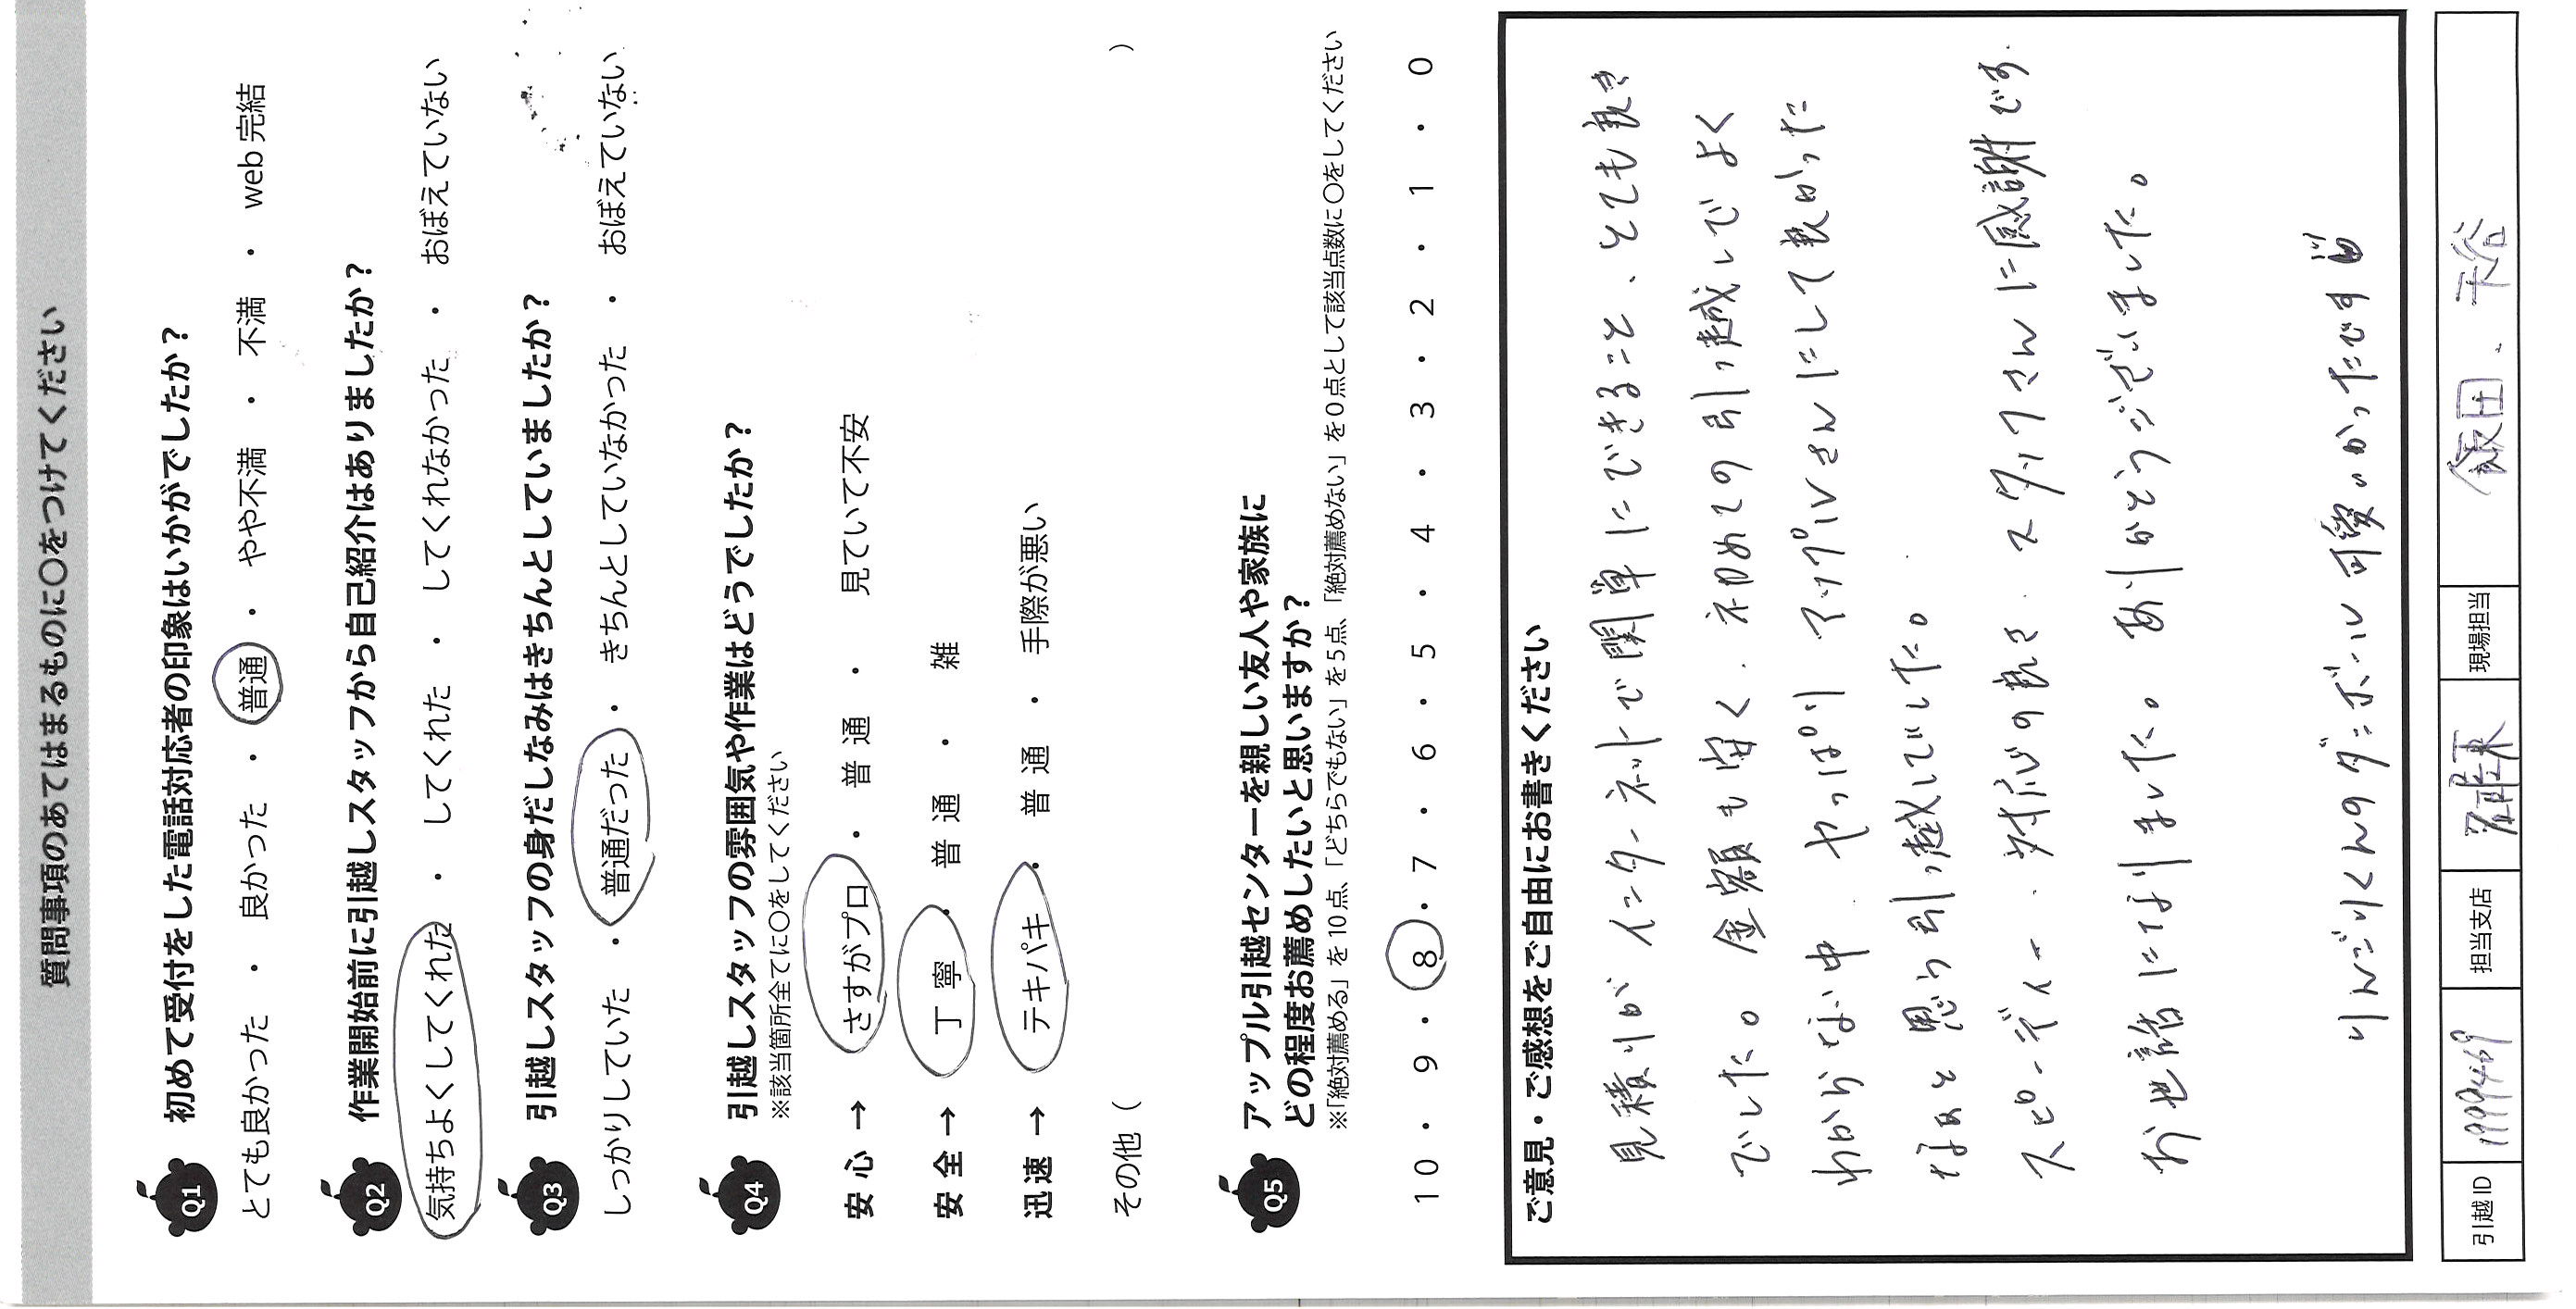 質問事項のあてはまるものに〇をつけてください
Q1 初めて受付をした電話対応者の印象はいかがでしたか？
とても良かった ・ 良かった ・ 普通 ・ やや不満 ・ 不満 ・ web完結
Q2 作業開始前に引越しスタッフから自己紹介はありましたか？
気持ちよくしてくれた ・ してくれた ・ してくれなかった ・ おぼえていない
Q3 引越しスタッフの身だしなみはきちんとしていましたか？
しっかりしていた ・ 普通だった ・ きちんとしていなかった ・ おぼえていない
Q4 引越しスタッフの雰囲気や作業はどうでしたか？
※該当箇所全てに〇をしてください
安心 → さすがプロ ・ 普通 ・ 見ていて不安
安全 → 丁寧 ・ 普通 ・ 雑
迅速 → テキパキ ・ 普通 ・ 手際が悪い
その他（ ）
Q5 アップル引越センターを親しい友人や家族に
どの程度お薦めしたいと思いますか？
※「絶対薦める」を10点、「どちらでもない」を5点、「絶対薦めない」を0点として該当点数に〇をしてください
10 ・ 9 ・ 8 ・ 7 ・ 6 ・ 5 ・ 4 ・ 3 ・ 2 ・ 1 ・ 0
ご意見・ご感想をご自由にお書きください
見積りが インターネットで簡単にできること、とても良き
でした。金額も安く、初めての引っ越しでよく
わからない中、やっぱり アップルさんにして良かった
なぁと思う引っ越しでした。
スピーディー、対応の良さ、スタッフさんに感謝です.
お世話になりました。ありがとうございました。
りんごりくんのダンボール 可愛いかったです
引越ID 1999469 担当支店 現場担当 飯田、